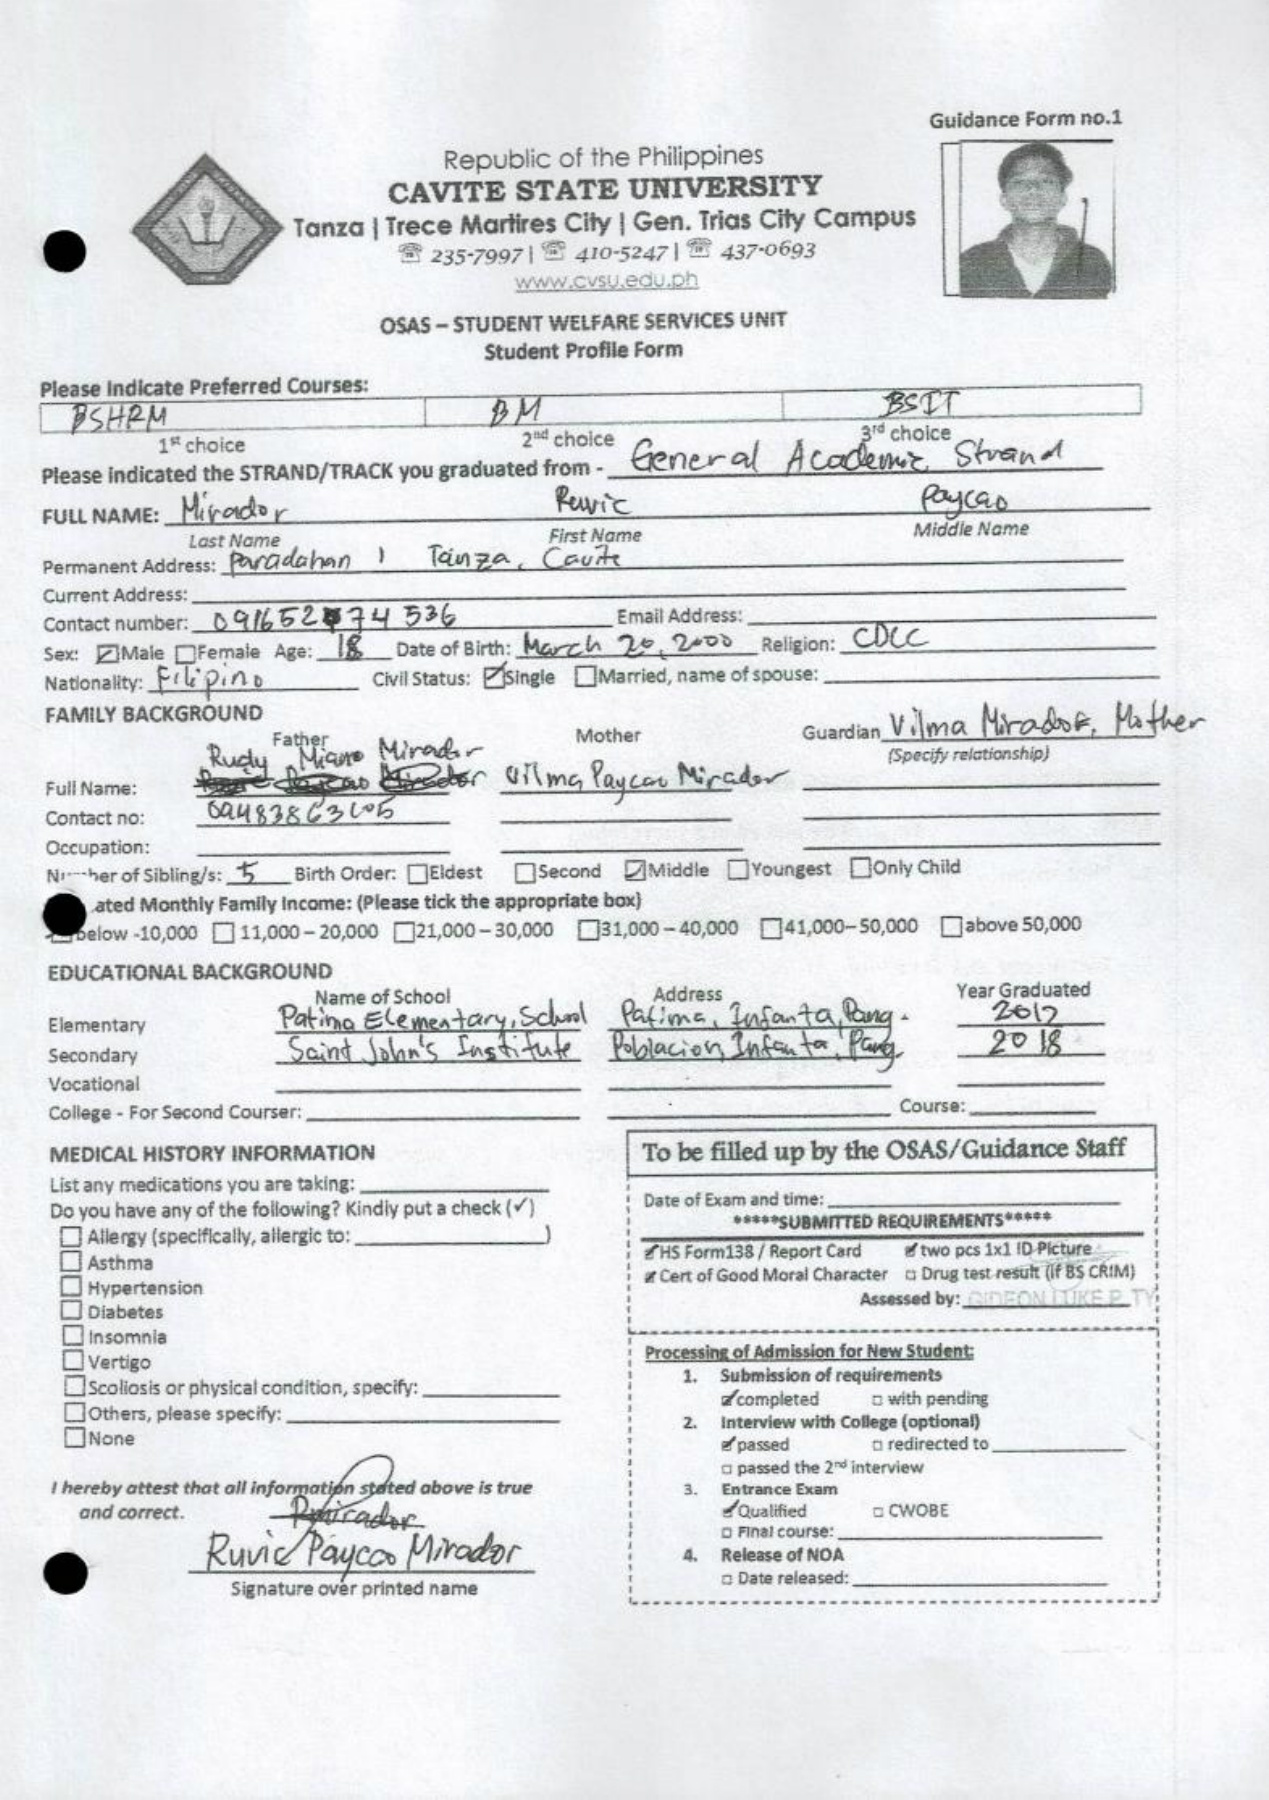 Guidance Form no.1
Republic of the Philippines
CAVITE STATE UNIVERSITY
Tanza | Trece Martires City | Gen. Trias City Campus
☏ 235-7997 | ☏ 410-5247 | ☏ 437-0693
www.cvsu.edu.ph
OSAS – STUDENT WELFARE SERVICES UNIT
Student Profile Form
Please Indicate Preferred Courses:
BSHRM BM BSIT
1st choice 2nd choice 3rd choice
Please indicated the STRAND/TRACK you graduated from - General Academic Strand
FULL NAME: Mirador Ruvic Paycao
Last Name First Name Middle Name
Permanent Address: Paradahan 1 Tanza, Cavite
Current Address:
Contact number: Email Address:
Sex: ☑Male ☐Female Age: 18 Date of Birth: March 20, 2000 Religion: CDCC
Nationality: Filipino Civil Status: ☑Single ☐Married, name of spouse:
FAMILY BACKGROUND
Father Mother Guardian Vilma Mirador, Mother
(Specify relationship)
Rudy Mirador
Full Name: Vilma Paycao Mirador
Contact no:
Occupation:
of Sibling/s: 5 Birth Order: ☐Eldest ☐Second ☑Middle ☐Youngest ☐Only Child
ated Monthly Family Income: (Please tick the appropriate box)
below -10,000 ☐ 11,000 – 20,000 ☐21,000 – 30,000 ☐31,000 – 40,000 ☐41,000– 50,000 ☐above 50,000
EDUCATIONAL BACKGROUND
Name of School Address Year Graduated
Elementary Patima Elementary, School Patima, Infanta, Pang. 2012
Secondary Saint John's Institute Poblacion, Infanta, Pang. 2018
Vocational
College - For Second Courser: Course:
MEDICAL HISTORY INFORMATION
List any medications you are taking:
Do you have any of the following? Kindly put a check (✓)
☐ Allergy (specifically, allergic to: )
☐ Asthma
☐ Hypertension
☐ Diabetes
☐ Insomnia
☐ Vertigo
☐ Scoliosis or physical condition, specify:
☐ Others, please specify:
☐ None
I hereby attest that all information stated above is true
and correct.
Ruvic Paycao Mirador
Signature over printed name
To be filled up by the OSAS/Guidance Staff
Date of Exam and time:
*****SUBMITTED REQUIREMENTS*****
☑ HS Form138 / Report Card ☑ two pcs 1x1 ID Picture
☑ Cert of Good Moral Character ☐ Drug test result (if BS CRIM)
Assessed by: GIDEON LUKE P. TY
Processing of Admission for New Student:
1. Submission of requirements
☑ completed ☐ with pending
2. Interview with College (optional)
☑ passed ☐ redirected to
☐ passed the 2nd interview
3. Entrance Exam
☑ Qualified ☐ CWOBE
☐ Final course:
4. Release of NOA
☐ Date released: